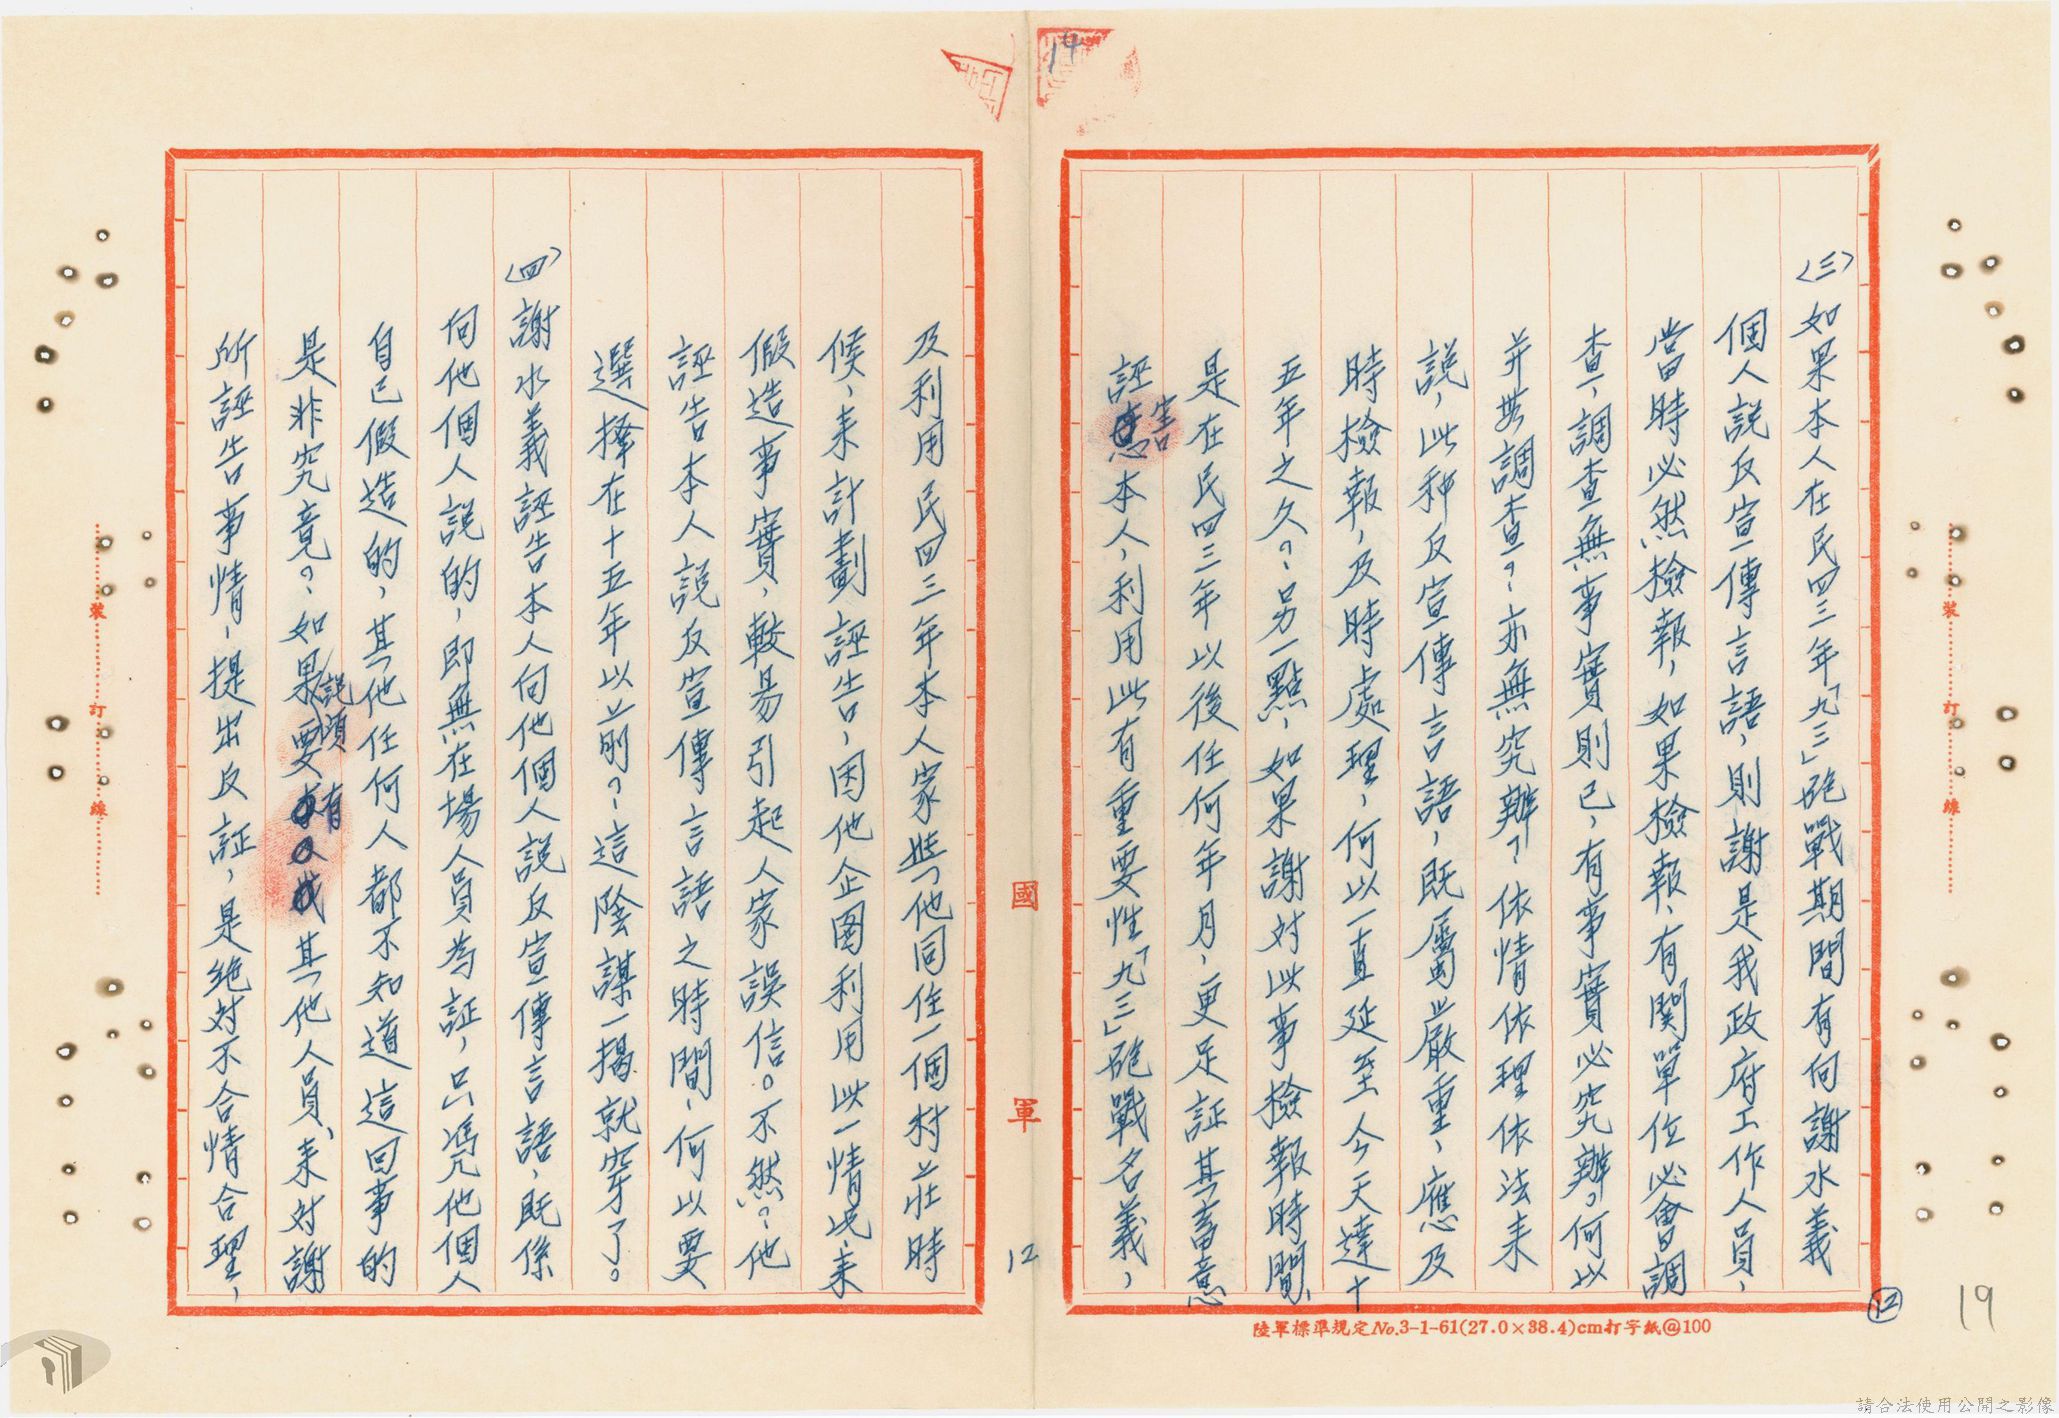 〈三〉如果本人在民四三年「九三」砲戰期間有向謝水義
個人說反宣傳言語，則謝是我政府工作人員，
當時必然檢報，如果檢報、有関單位必會調
查，調查無事實則已，有事實必究辦。何以
并無調查？亦無究辦？依情依理依法来
說，此种反宣傳言語，既屬嚴重，應及
時檢報，及時處理，何以一直延至今天達十
五年之久？另一點，如果謝对此事檢報時間、
是在民四三年以後任何年月，更足証其蓄意
誣告本人，利用此有重要性「九三」砲戰名義，
及利用民四三年本人家與他同住一個村莊時
候，来計劃誣告，因他企図利用此一情况，来
假造事實，較易引起人家誤信。不然？他
誣告本人說反宣傳言語之時間，何以要
選擇在十五年以前？這陰謀一揭就穿了。
〈四〉謝水義誣告本人向他個人說反宣傳言語，既係
向他個人說的，即無在場人員為証，只馮凡他個人
自己假造的，其他任何人都不知道這回事的
是非究竟？如果說須要有其他人員、来对謝
所誣告事情，提出反証，是絶対不合情合理，
國軍
12
14
12
19
裝訂線
裝訂線
陸軍標準規定No.3-1-61(27.0×38.4)cm打字紙@100
請合法使用公開之影像